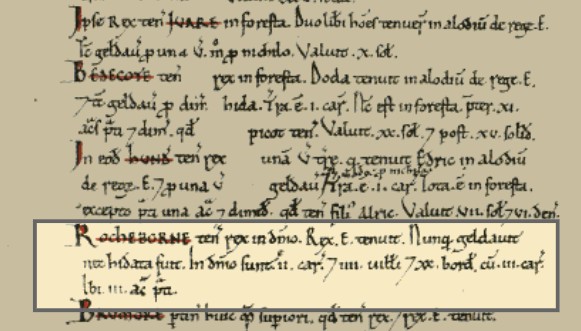 Ipse Rex ten̄ IVARE in foresta. Duo libi hōes tenuer̄ in alodiū de rege. E.
Tc̄ geldau̅ ꝑ una v̄. m̊ ꝑ nichilo. Valuit .x. sol.
BEDECOTE ten̄ rex in foresta. Doda tenuit in alodiū de rege. E.
⁊ tc̄ geldau̅ ꝓ dim̄ hida. Tr̄a. ē .i. car̄. Nc̄ est in foresta p̄ter .xi.
ac̄s p̄ti ⁊ dim̄. qd̄ picot ten̄. Valuit .xx. sol. ⁊ post .xv. solid̄.
In eod̄ HVND ten̄ rex unā v̄ tr̄e. q̄ tenuit Edric in alodiū
de rege. E. ⁊ ꝑ una v̄ geldau̅ Tr̄a. ē .i. car̄. Tota. ē in foresta.
excepto p̄ti una ac̄ ⁊ dimed̄. qd̄ ten̄ fili᷒ Alric. Valuit .vii. sol ⁊ vi. den̄.
ROCHEBORNE ten̄ rex in dn̄io. Rex. E. tenuit. Nunq̄ geldauit
nec hidata fuit. In dn̄io sunt .ii. car̄. ⁊ .iiii. uilli ⁊ .xx. bord̄. cū .iii. car̄.
Ibi .iii. ac̄ p̄ti.
ptin̄ huic superiori. qd̄ ten̄ rex. ⁊ rex. E. tenuit.